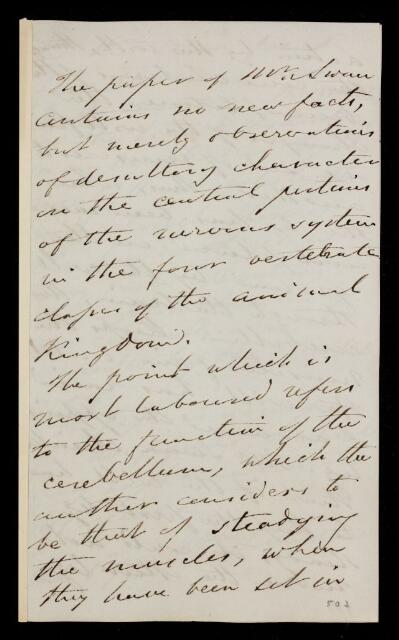 The paper of Mr. Swan
contains no new facts,
but merely observations
of desultory character
on the central portions
of the nervous system
in the four vertebrate
classes of the animal
Kingdom.
The point which is
most laboured refers
to the function of the
cerebellum, which the
author considers to
be that of steadying
the muscles, when
they have been set in
502